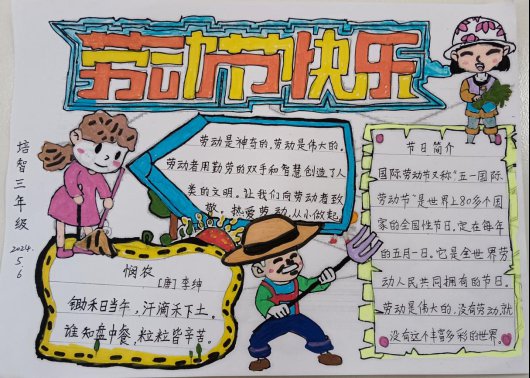 劳动节快乐
培智三年级
2024.5.6
劳动是神奇的,劳动是伟大的。
劳动者用勤劳的双手和智慧创造了人
类的文明。让我们向劳动者致
敬,热爱劳动,从小做起
悯农
[唐]李绅
锄禾日当午,汗滴禾下土。
谁知盘中餐,粒粒皆辛苦。
节日简介
国际劳动节又称“五一国际
劳动节”是世界上80多个国
家的全国性节日。定在每年
的五月一日。它是全世界劳
动人民共同拥有的节日。
劳动是伟大的,没有劳动,就
没有这个丰富多彩的世界。